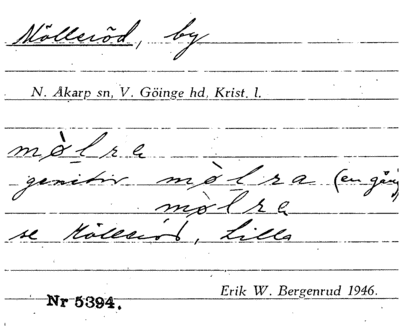 Mölleröd, by
N. Åkarp sn, V. Göinge hd, Krist. l.
mò̤lra
genitiv mò̤lra (en gång
mò̤lra
se Mölleröd, Lilla
Erik W. Bergenrud 1946.
Nr 5394.